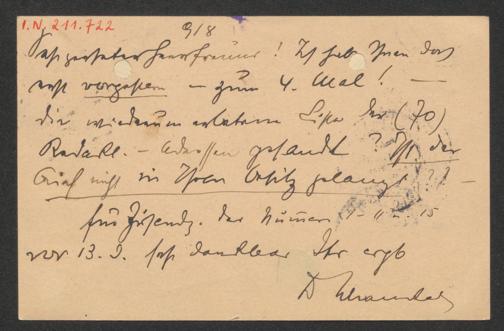 I.N. 211.722
9/8
Sehr geehrter Herr Freund! Ich hab Ihnen doch
erst vorgestern – zum 4. Mal! –
die wiederum erbetene Liste der (70)
Redakt. – Adressen gesandt? Ist der
Brief nicht in Ihren Besitz gelangt?? –
für Zusendg. der Numern 15
vor 13. J. sehr dankbar Ihr ergb
D